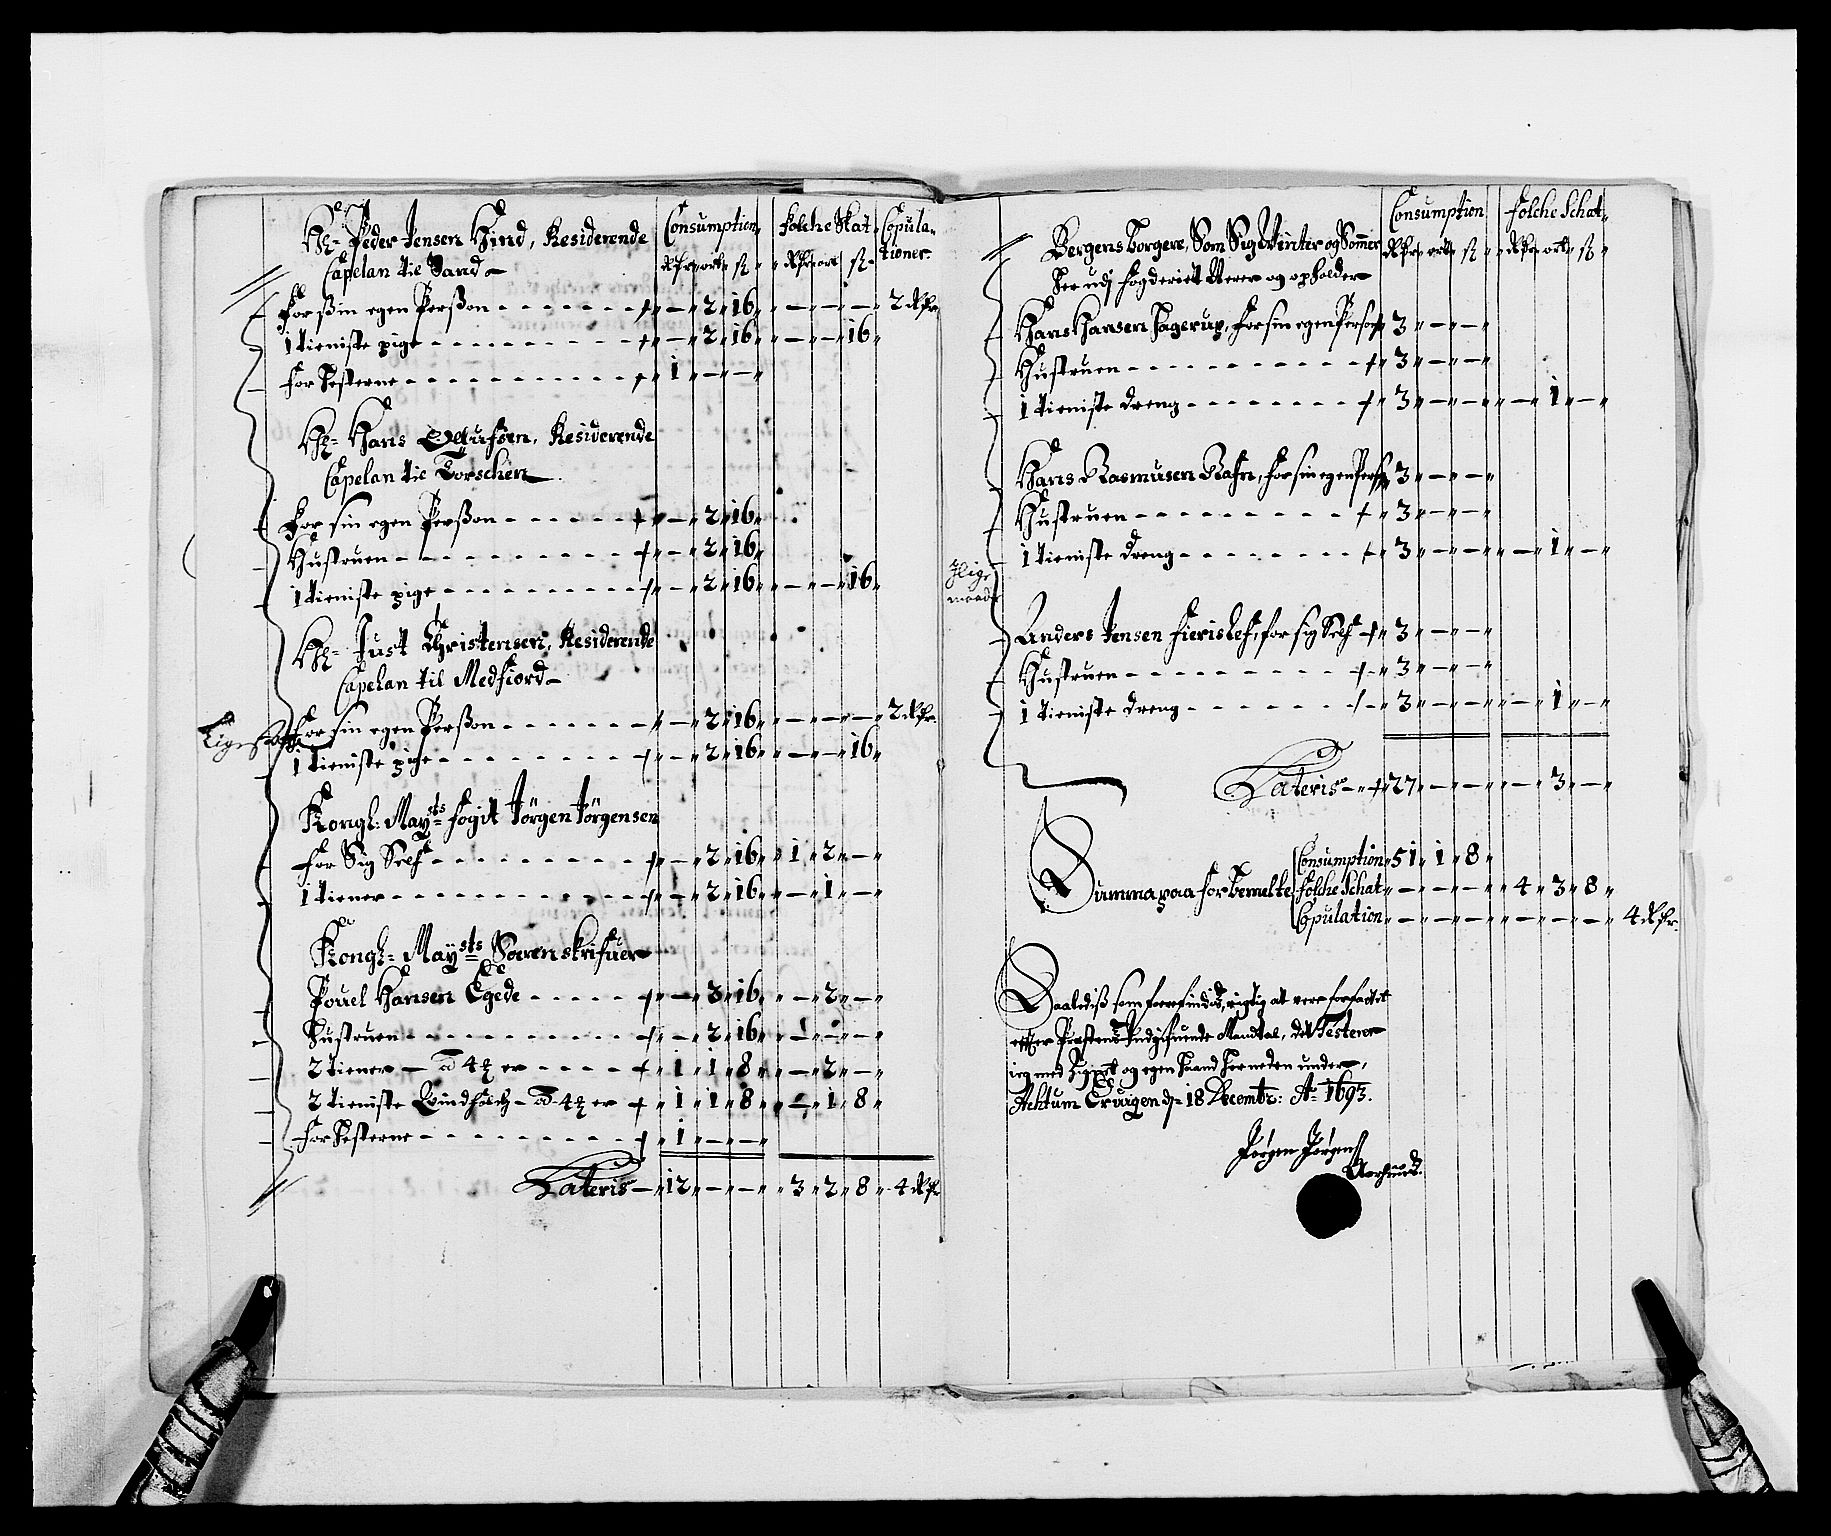 Hr= Peder Jensen Hind, Residerende Consumption, Folche Skat, Copula-
Capelan til Sand - Rdr ort ß Rdr ort ß tioner
For ßin egen Perßon - - " - " 2 " 16 " " - " - " - 2 Rdr
1 tieniste pige - - " - " 2 " 16 " " - " - " 16 "
for Hesterne - - " 1 " - " - "
Hr= Hans Olufsen, Residerende
Capelan til Torschen
For sin egen Perßon - - " - " 2 " 16 "
Hustruen - - " - " 2 " 16 "
1 tieniste pige - - " - " 2 " 16 " " - " - " 16 "
Hr= Just Christensen, Residerende
Capelan til Medfiord -
For sin egen Perßon - - " - " 2 " 16 " " - " - " - 2 Rdr
1 tieniste pige - - " - " 2 " 16 " " - " - " 16 "
Kongl: Maysts fogit Jörgen Jörgensen
for Sig Self - - " - " 2 " 16 " " 1 " 2 " - "
1 tiener - - " - " 2 " 16 " " - " 1 " - "
Kongl= Maysts Sorenskrifuer
Pouel Hansen Egede - - " - " 3 " 16 " " - " 2 " - "
Hustruen - - " - " 2 " 16 " " - " - " - "
2 tiener - a 4 ß er - - " 1 " 1 " 8 " " - " 2 " - "
2 tieniste Quindfolch - a 4 ß er " 1 " 1 " 8 " " - " 1 " 8 "
for Hesterne - - " 1 " - " - "
Lateris - " 12 " - " - " " 3 " 2 " 8 " 4 Rdr
Bergens Borgere, Som Sig Winter og Sommer Consumption Folche Schat
her udj fogderiet Verer og opholder Rdr ort ß Rdr ort ß
Hans Hansen Fagerup, for sin egen Person 3 " - " - "
Hustruen - - " 3 " - " - "
1 tieniste dreng - - " 3 " - " - " " - " 1 " - "
Hans Rasmusen Rafn, for sin egen Perßon 3 " - " - "
Hustruen - - " 3 " - " - "
1 tieniste dreng - - " 3 " - " - " " - " 1 " - "
Jlige
maade
Anders Jensen Fierislef, for sig Self 3 " - " - "
Hustruen - - " 3 " - " - "
1 tieniste dreng - - " 3 " - " - " " - " 1 " - "
Lateris - 27 " - " - " " - " 3 " - "
Consumption " 51 " 1 " 8 "
Summa paa forbemelte Folche Schat " - " - " - " " 4 " 3 " 8 "
Copulation " - " - " - " " - " - " - " 4 Rdr
Saalediß som forefindis, rigtig at vere forfattet
efter Præstens Mandtal, det Testerer
ieg med Zignet og egen haand herneden under,
Actum Cruigen d= 18 Decembr: Ao 1693.
Jørgen Jørgens
Aarhuus